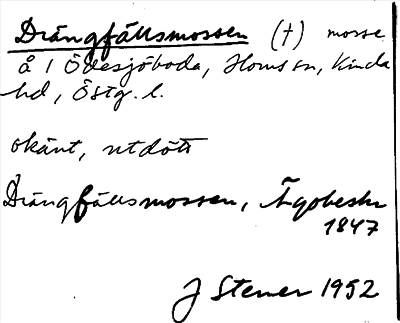 Drängfällsmossen (†) mosse
å 1 Ödesjöboda, Horns sn, Kinda
hd, Östg. l.
okänt, utdött
Drängfällsmossen, Ägobeskr
1847
J Stener 1952